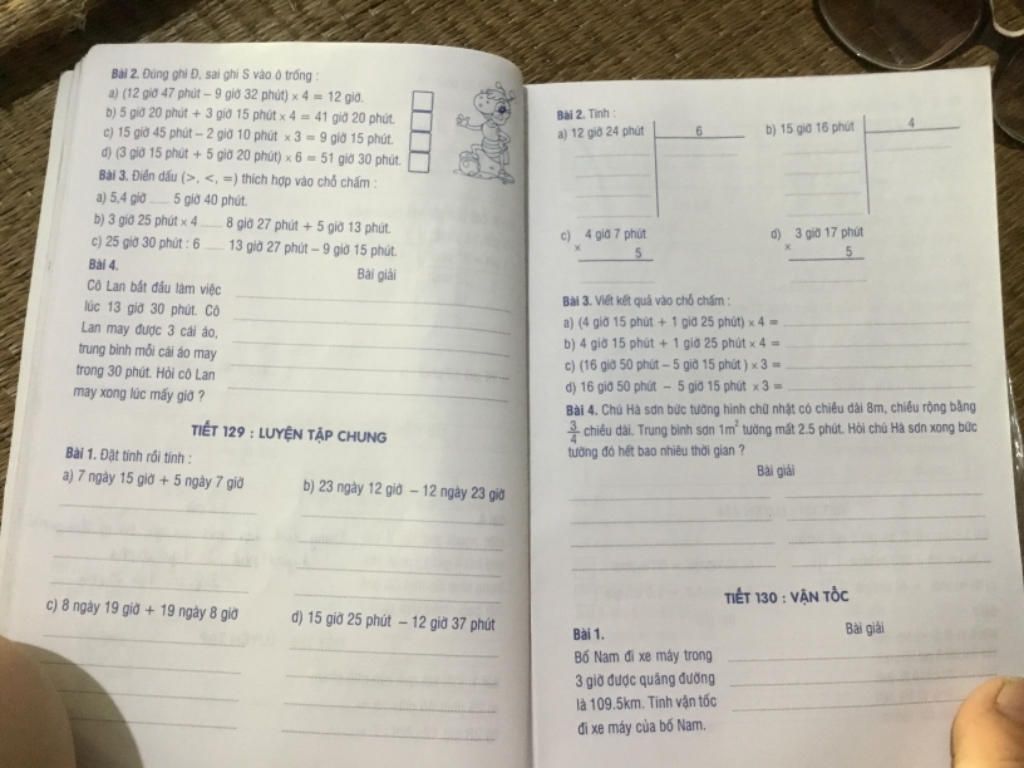 Bài 2. Đúng ghi Đ, sai ghi S vào ô trống :
a) (12 giờ 47 phút – 9 giờ 32 phút) × 4 = 12 giờ.
b) 5 giờ 20 phút + 3 giờ 15 phút × 4 = 41 giờ 20 phút.
c) 15 giờ 45 phút – 2 giờ 10 phút × 3 = 9 giờ 15 phút.
d) (3 giờ 15 phút + 5 giờ 20 phút) × 6 = 51 giờ 30 phút.
Bài 3. Điền dấu (>, <, =) thích hợp vào chỗ chấm :
a) 5,4 giờ ...... 5 giờ 40 phút.
b) 3 giờ 25 phút × 4 ...... 8 giờ 27 phút + 5 giờ 13 phút.
c) 25 giờ 30 phút : 6 ...... 13 giờ 27 phút – 9 giờ 15 phút.
Bài 4.
Bài giải
Cô Lan bắt đầu làm việc
lúc 13 giờ 30 phút. Cô
Lan may được 3 cái áo,
trung bình mỗi cái áo may
trong 30 phút. Hỏi cô Lan
may xong lúc mấy giờ ?
TIẾT 129 : LUYỆN TẬP CHUNG
Bài 1. Đặt tính rồi tính :
a) 7 ngày 15 giờ + 5 ngày 7 giờ
b) 23 ngày 12 giờ – 12 ngày 23 giờ
c) 8 ngày 19 giờ + 19 ngày 8 giờ
d) 15 giờ 25 phút – 12 giờ 37 phút
Bài 2. Tính :
a) 12 giờ 24 phút 6
b) 15 giờ 16 phút 4
c) 4 giờ 7 phút
× 5
d) 3 giờ 17 phút
× 5
Bài 3. Viết kết quả vào chỗ chấm :
a) (4 giờ 15 phút + 1 giờ 25 phút) × 4 =
b) 4 giờ 15 phút + 1 giờ 25 phút × 4 =
c) (16 giờ 50 phút – 5 giờ 15 phút ) × 3 =
d) 16 giờ 50 phút – 5 giờ 15 phút × 3 =
Bài 4. Chú Hà sơn bức tường hình chữ nhật có chiều dài 8m, chiều rộng bằng
3/4 chiều dài. Trung bình sơn 1m² tường mất 2.5 phút. Hỏi chú Hà sơn xong bức
tường đó hết bao nhiêu thời gian ?
Bài giải
TIẾT 130 : VẬN TỐC
Bài 1.
Bài giải
Bố Nam đi xe máy trong
3 giờ được quãng đường
là 109.5km. Tính vận tốc
đi xe máy của bố Nam.